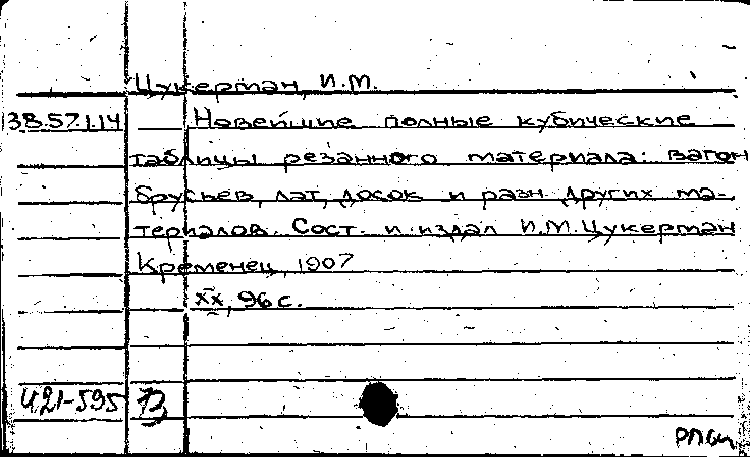 Цукерман, И.М.
38.57.1.14 Новейшие полные кубические
таблицы резанного материала: вагон
брусьев, лат, досок и разн других ма-
териалов. Сост. и издал И.М.Цукерман
Кременец, 1907
XX, 96 с.
421-595 В